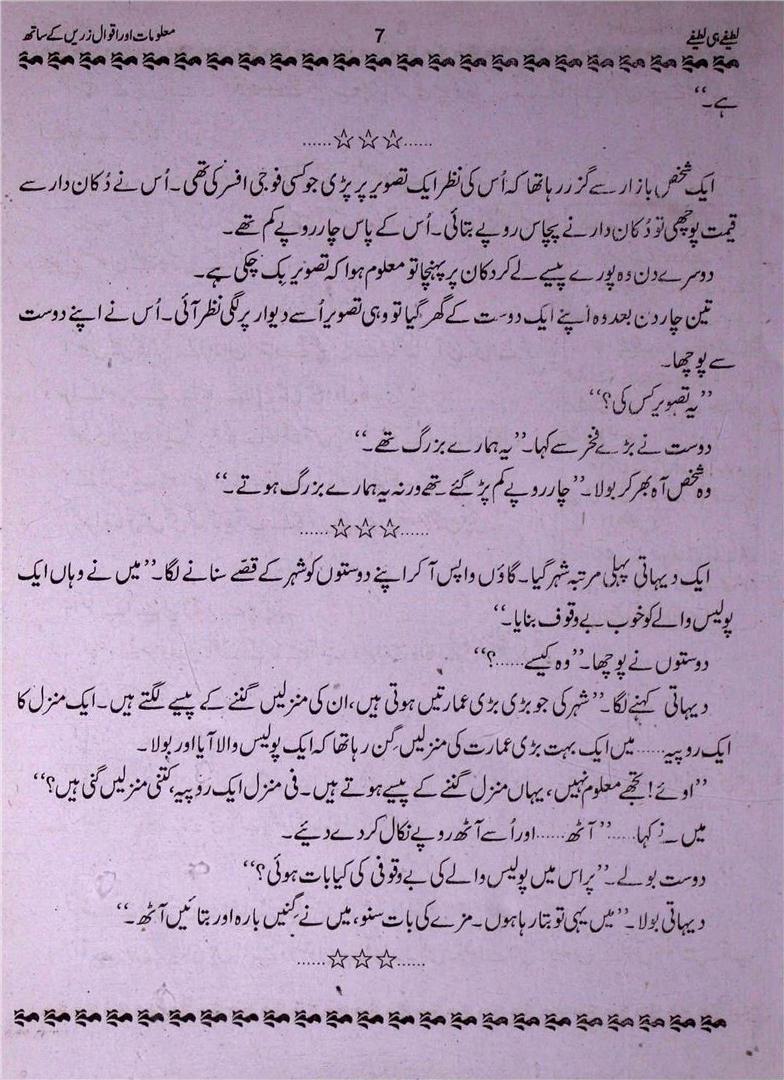 لطیفے ہی لطیفے 7 معلومات اور اقوال زریں کے ساتھ
ہے۔‘‘
......☆☆☆......
ایک شخص بازار سے گزر رہا تھا کہ اُس کی نظر ایک تصویر پر پڑی جو کسی فوجی افسر کی تھی۔ اُس نے دُکان دار سے
قیمت پوچھی تو دُکان دار نے پچاس روپے بتائی۔ اُس کے پاس چار روپے کم تھے۔
دوسرے دن وہ پورے پیسے لے کر دکان پر پہنچا تو معلوم ہوا کہ تصویر بِک چکی ہے۔
تین چار دن بعد وہ اپنے ایک دوست کے گھر گیا تو وہی تصویر اُسے دیوار پر لگی نظر آئی۔ اُس نے اپنے دوست
سے پوچھا۔
’’یہ تصویر کس کی؟‘‘
دوست نے بڑے فخر سے کہا۔ ’’یہ ہمارے بزرگ تھے۔‘‘
وہ شخص آہ بھر کر بولا۔ ’’چار روپے کم پڑ گئے تھے ورنہ یہ ہمارے بزرگ ہوتے۔‘‘
......☆☆☆......
ایک دیہاتی پہلی مرتبہ شہر گیا۔ گاؤں واپس آ کر اپنے دوستوں کو شہر کے قصّے سنانے لگا۔ ’’میں نے وہاں ایک
پولیس والے کو خوب بے وقوف بنایا۔‘‘
دوستوں نے پوچھا۔ ’’وہ کیسے......؟‘‘
دیہاتی کہنے لگا۔ ’’شہر کی جو بڑی بڑی عمارتیں ہوتی ہیں، ان کی منزلیں گننے کے پیسے لگتے ہیں۔ ایک منزل کا
ایک روپیہ...... میں ایک بہت بڑی عمارت کی منزلیں گِن رہا تھا کہ ایک پولیس والا آیا اور بولا۔
’’اوئے! تجھے معلوم نہیں، یہاں منزل گننے کے پیسے ہوتے ہیں۔ فی منزل ایک روپیہ، کتنی منزلیں گنی ہیں؟‘‘
میں نے کہا...... ’’آٹھ...... اور اُسے آٹھ روپے نکال کر دے دیئے۔
دوست بولے۔ ’’پر اس میں پولیس والے کی بے وقوفی کی کیا بات ہوئی؟‘‘
دیہاتی بولا۔ ’’میں یہی تو بتا رہا ہوں۔ مزے کی بات سنو، میں نے گِنیں بارہ اور بتائیں آٹھ۔‘‘
......☆☆☆......